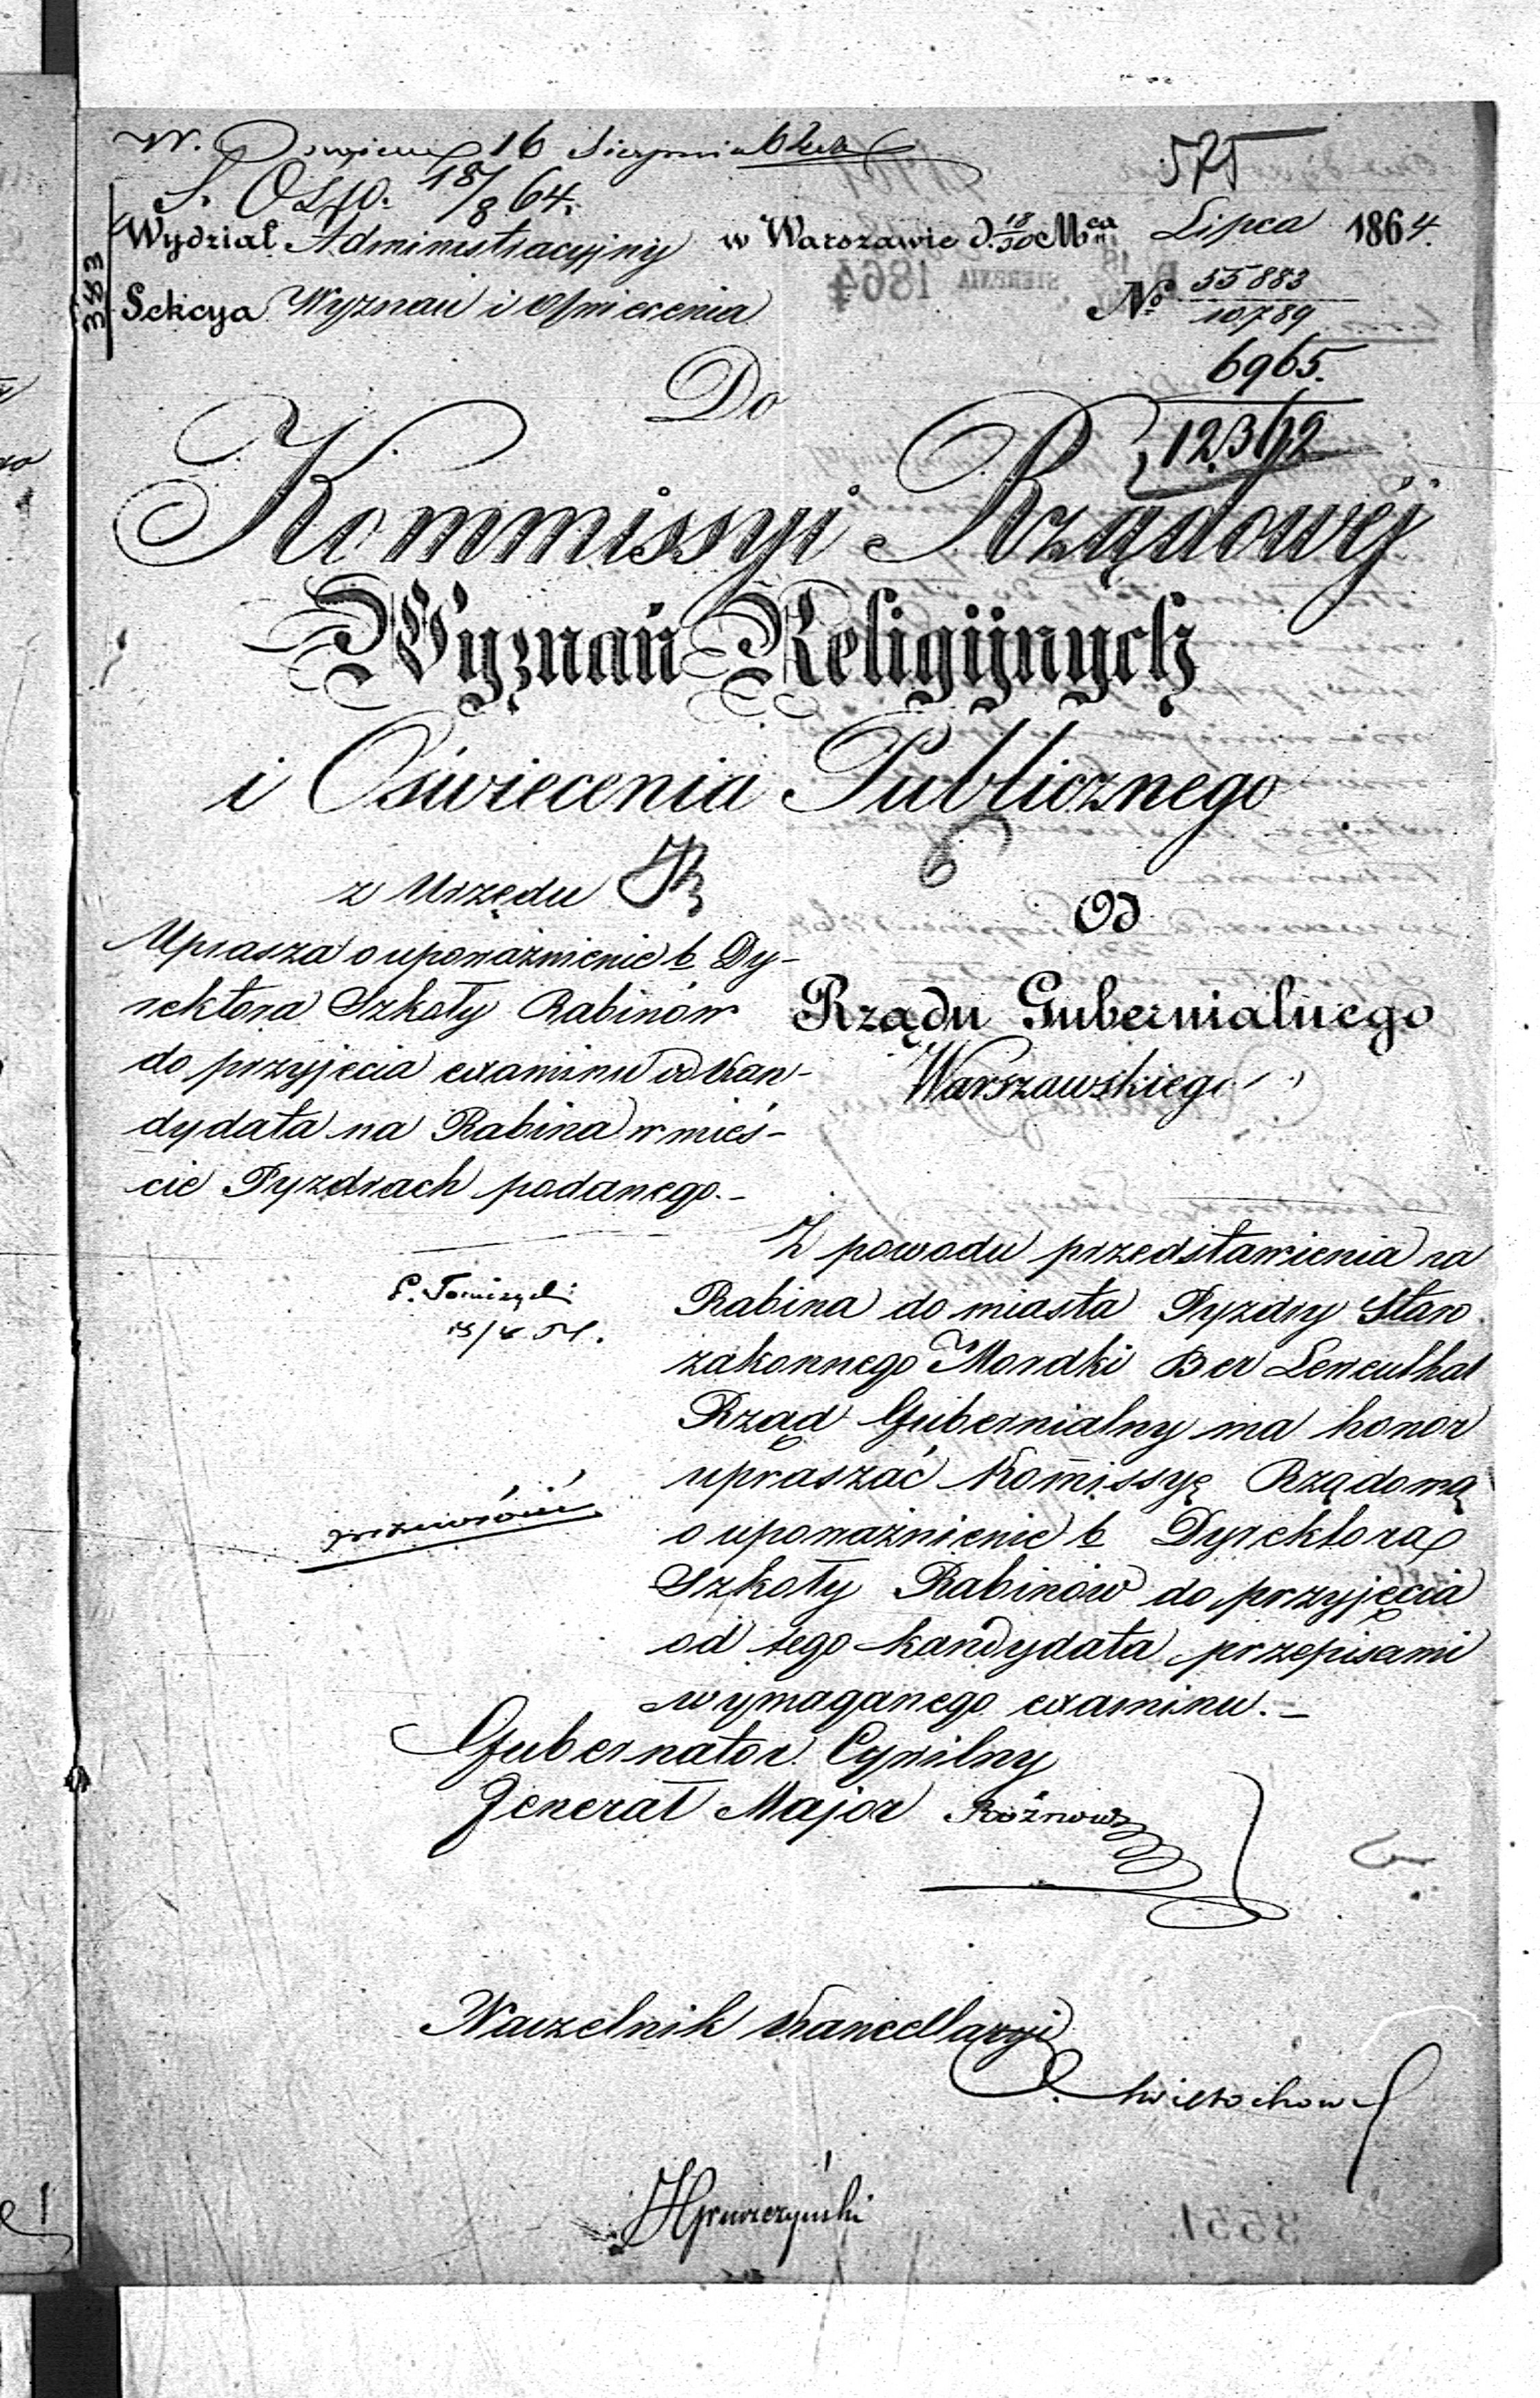 16 Sierpnia
575
18/8 64.
Wydział Administracyjny w Warszawie d. 18/30 Mca Lipca 1864.
3853
Sekcya Wyznań i Oświecenia
No 55883
10789
6965.
12362
Do
Kommissyi Rządowéj
Wyznań Religijnych
i Oświecenia Publicznego
z Urzędu
6
Uprasza o upoważnienie b. Dy-
rektora Szkoły Rabinów
do przyjęcia examinu od kan-
dydata na Rabina w mieś-
cie Pyzdrach podanego.-
Od
Rządu Gubernialnego
Warszawskiego
Z powodu przedstawienia na
Rabina do miasta Pyzdry Staro
zakonnego Mordki Ber Lewenthal
Rząd Gubernialny ma honor
upraszać Kommissyę Rządową
o upoważnienie b. Dyrektora
Szkoły Rabinów do przyjęcia
od tego kandydata przepisami
wymaganego examinu.-
Gubernator Cywilny
Jenerał Major Rożnow
Naczelnik Kancellaryi